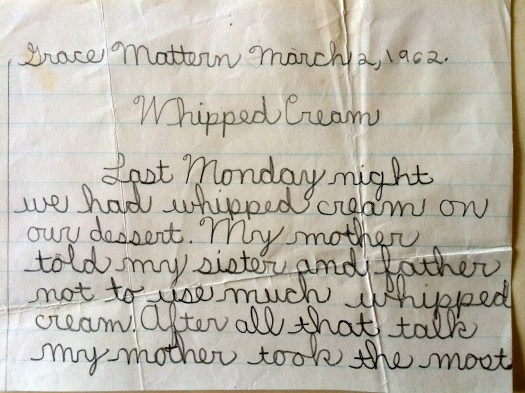 Grace Mattern March 2, 1962.
Whipped Cream
Last Monday night
we had whipped cream on
our dessert. My mother
told my sister and father
not to use much whipped
cream. After all that talk
my mother took the most